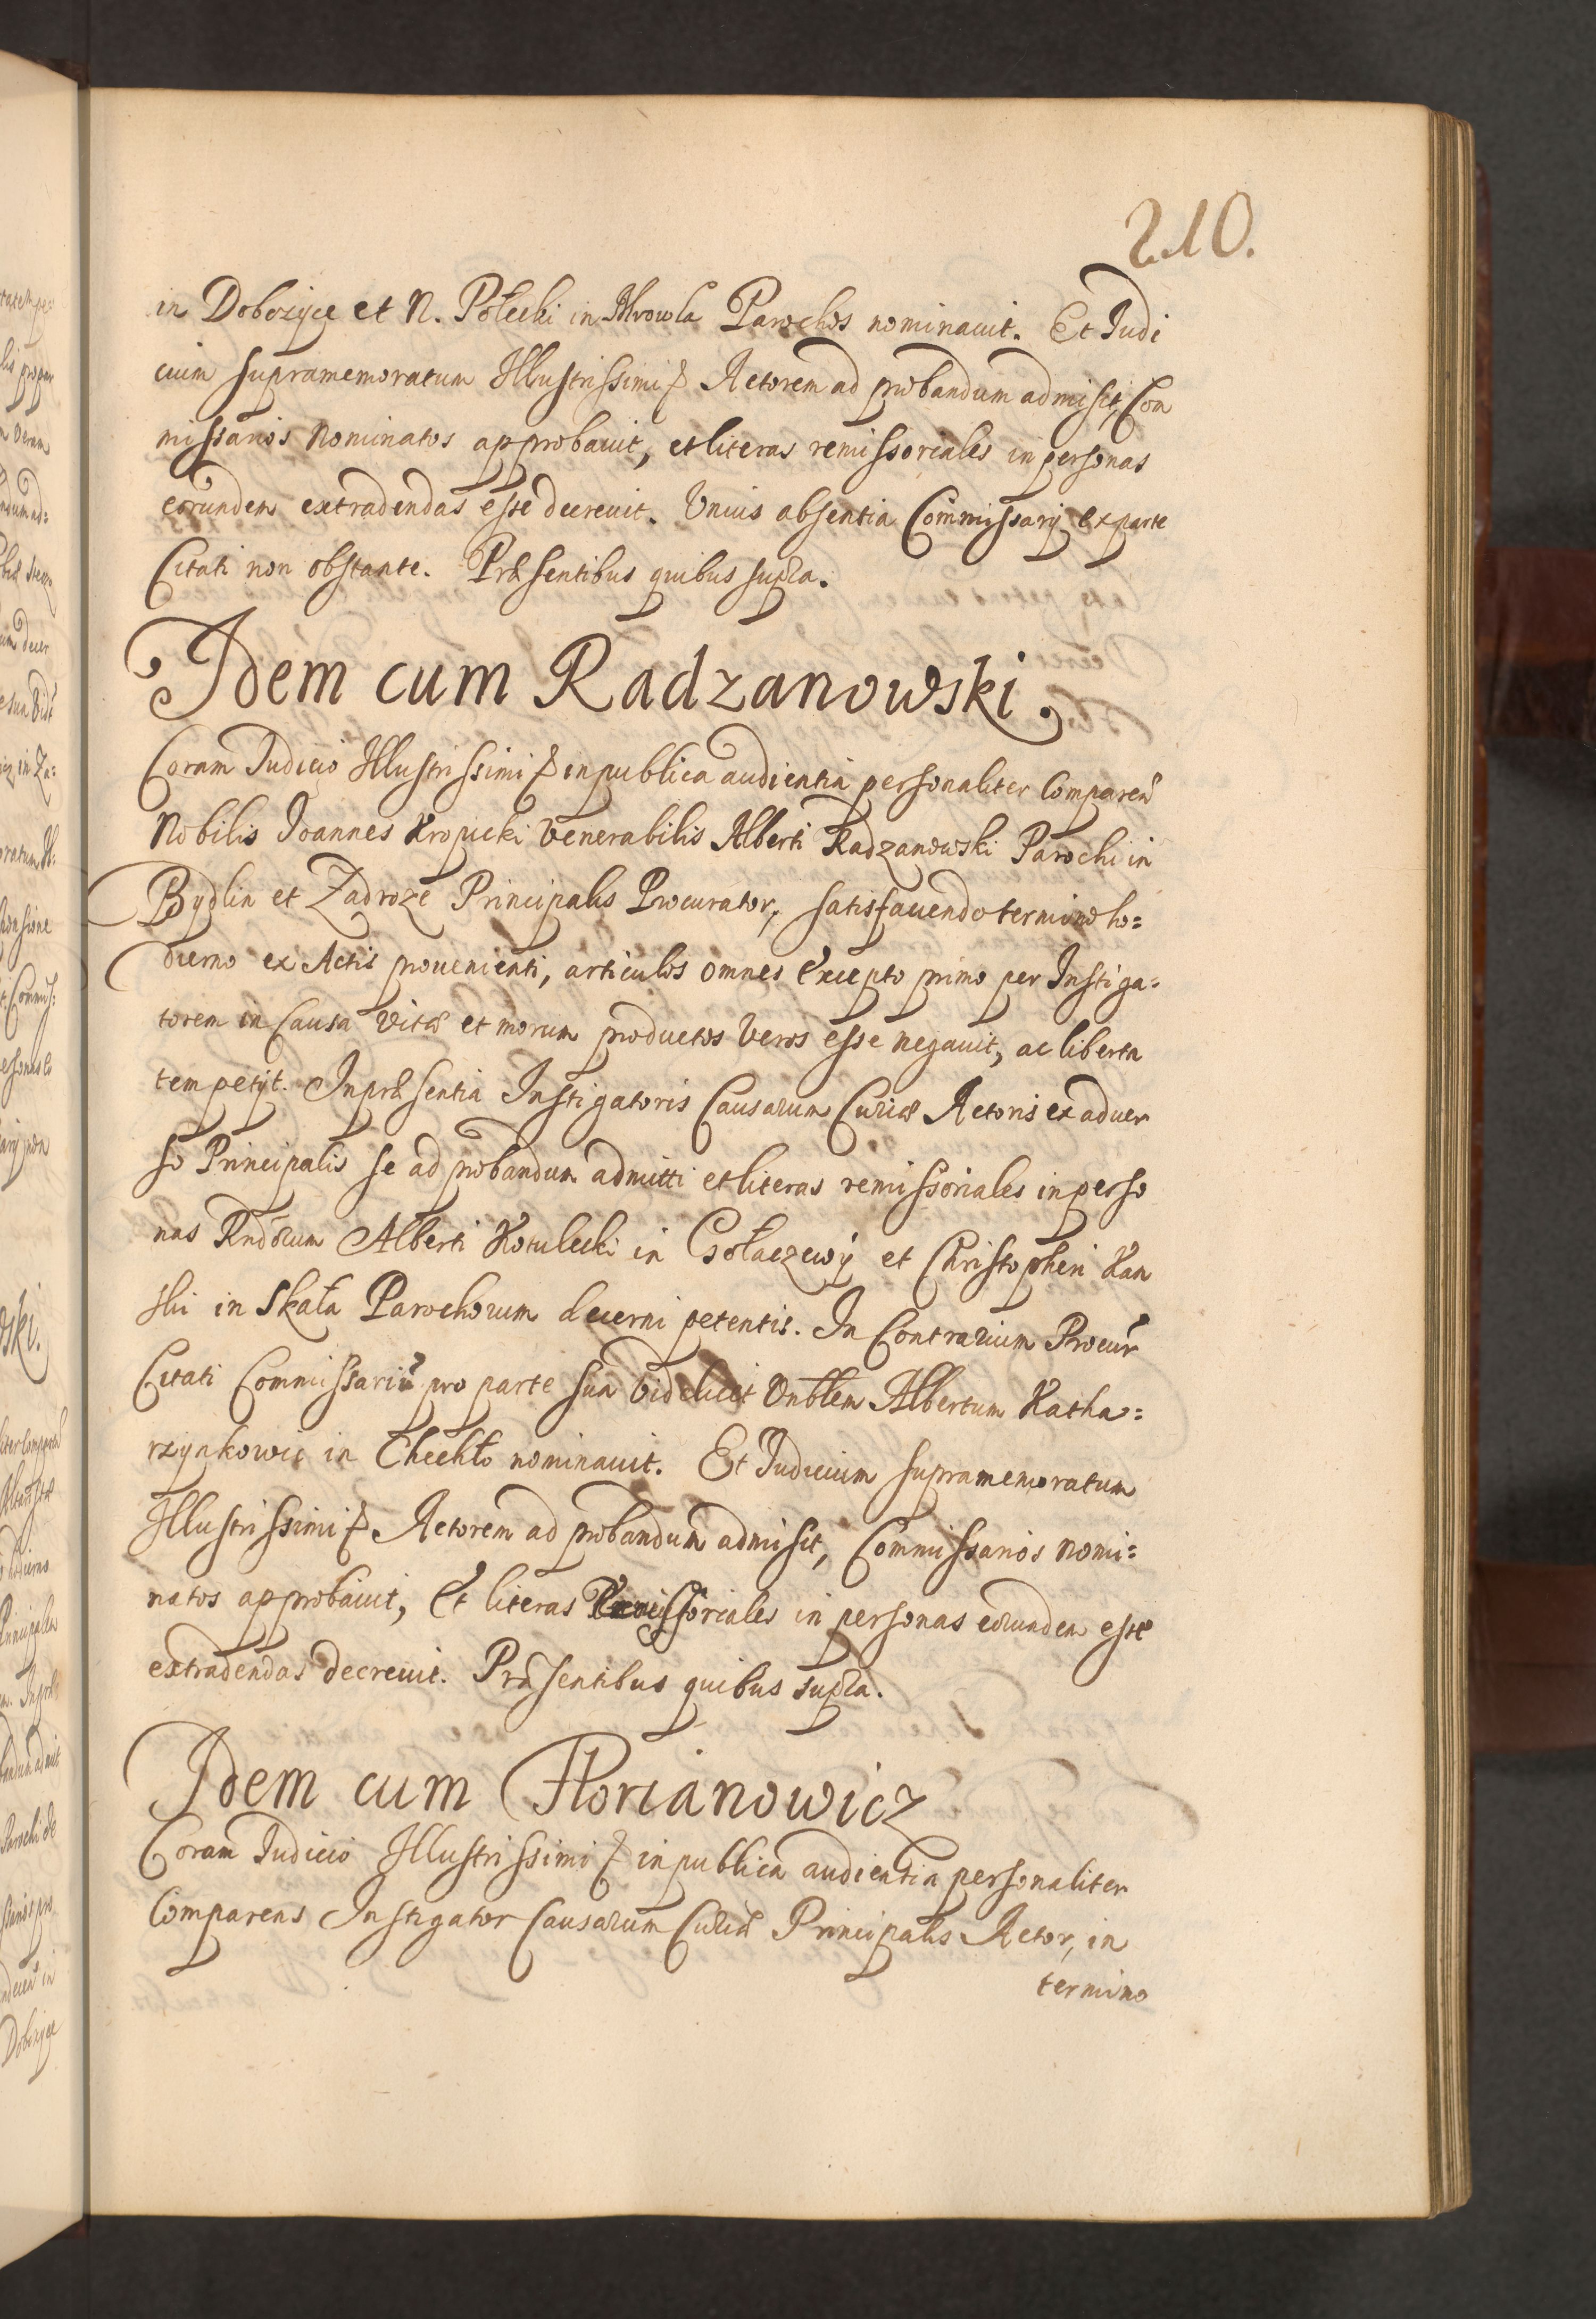 210.
in Dobczyce et N. Połecki in Mrowla Parochos nominauit. Et Judi
cium supramemoratum Illustrissimi & Actorem ad probandum admisit, Com
missarios Nominatos approbauit, et literas remissoriales in personas
eorundem extradendas esse decreuit. Vnius absentia Commissarij ex parte
Citati non obstante. Præsentibus quibus supra.
Idem cum Radzanowski.
Coram Judicio Illustrissimi & in publica audientia personaliter Comparen
Nobilis Joannes Kropicki Venerabilis Alberti Radzanowski Parochi in
Bydlin et Zadroze Principalis Procurator, satisfaciendo termino ho=
dierno ex Actis prouenienti, articulos omnes Excepto primo per Instiga=
torem in Causa Vitæ et morum productos Veros esse negauit, ac liberta
tem petijt. In præsentia Instigatoris Causarum Curiæ Actoris ex aduer
so Principalis se ad probandum admitti et literas remissoriales in perso
nas Rndorum Alberti Kotulecki in Gołaczewÿ et Christopheri Kan
ski in Skała Parochorum decerni petentis. In Contrarium Procur
Citati Commissariū pro parte sua videlicet Vnblem Albertum Katha=
rzynkowic in Chechło nominauit. Et Judicium supramemoratum
Illustrissimi & Actorem ad probandum admisit, Commissarios nomi=
natos approbauit, Et literas Remissoriales in personas eorundem esse
extradendas decreuit. Præsentibus quibus supra.
Idem cum Florianowicz
Coram Judicio Illustrissimi & in publica audientia personaliter
Comparens Instigator Causarum Curiæ Principalis Actor, in
termino